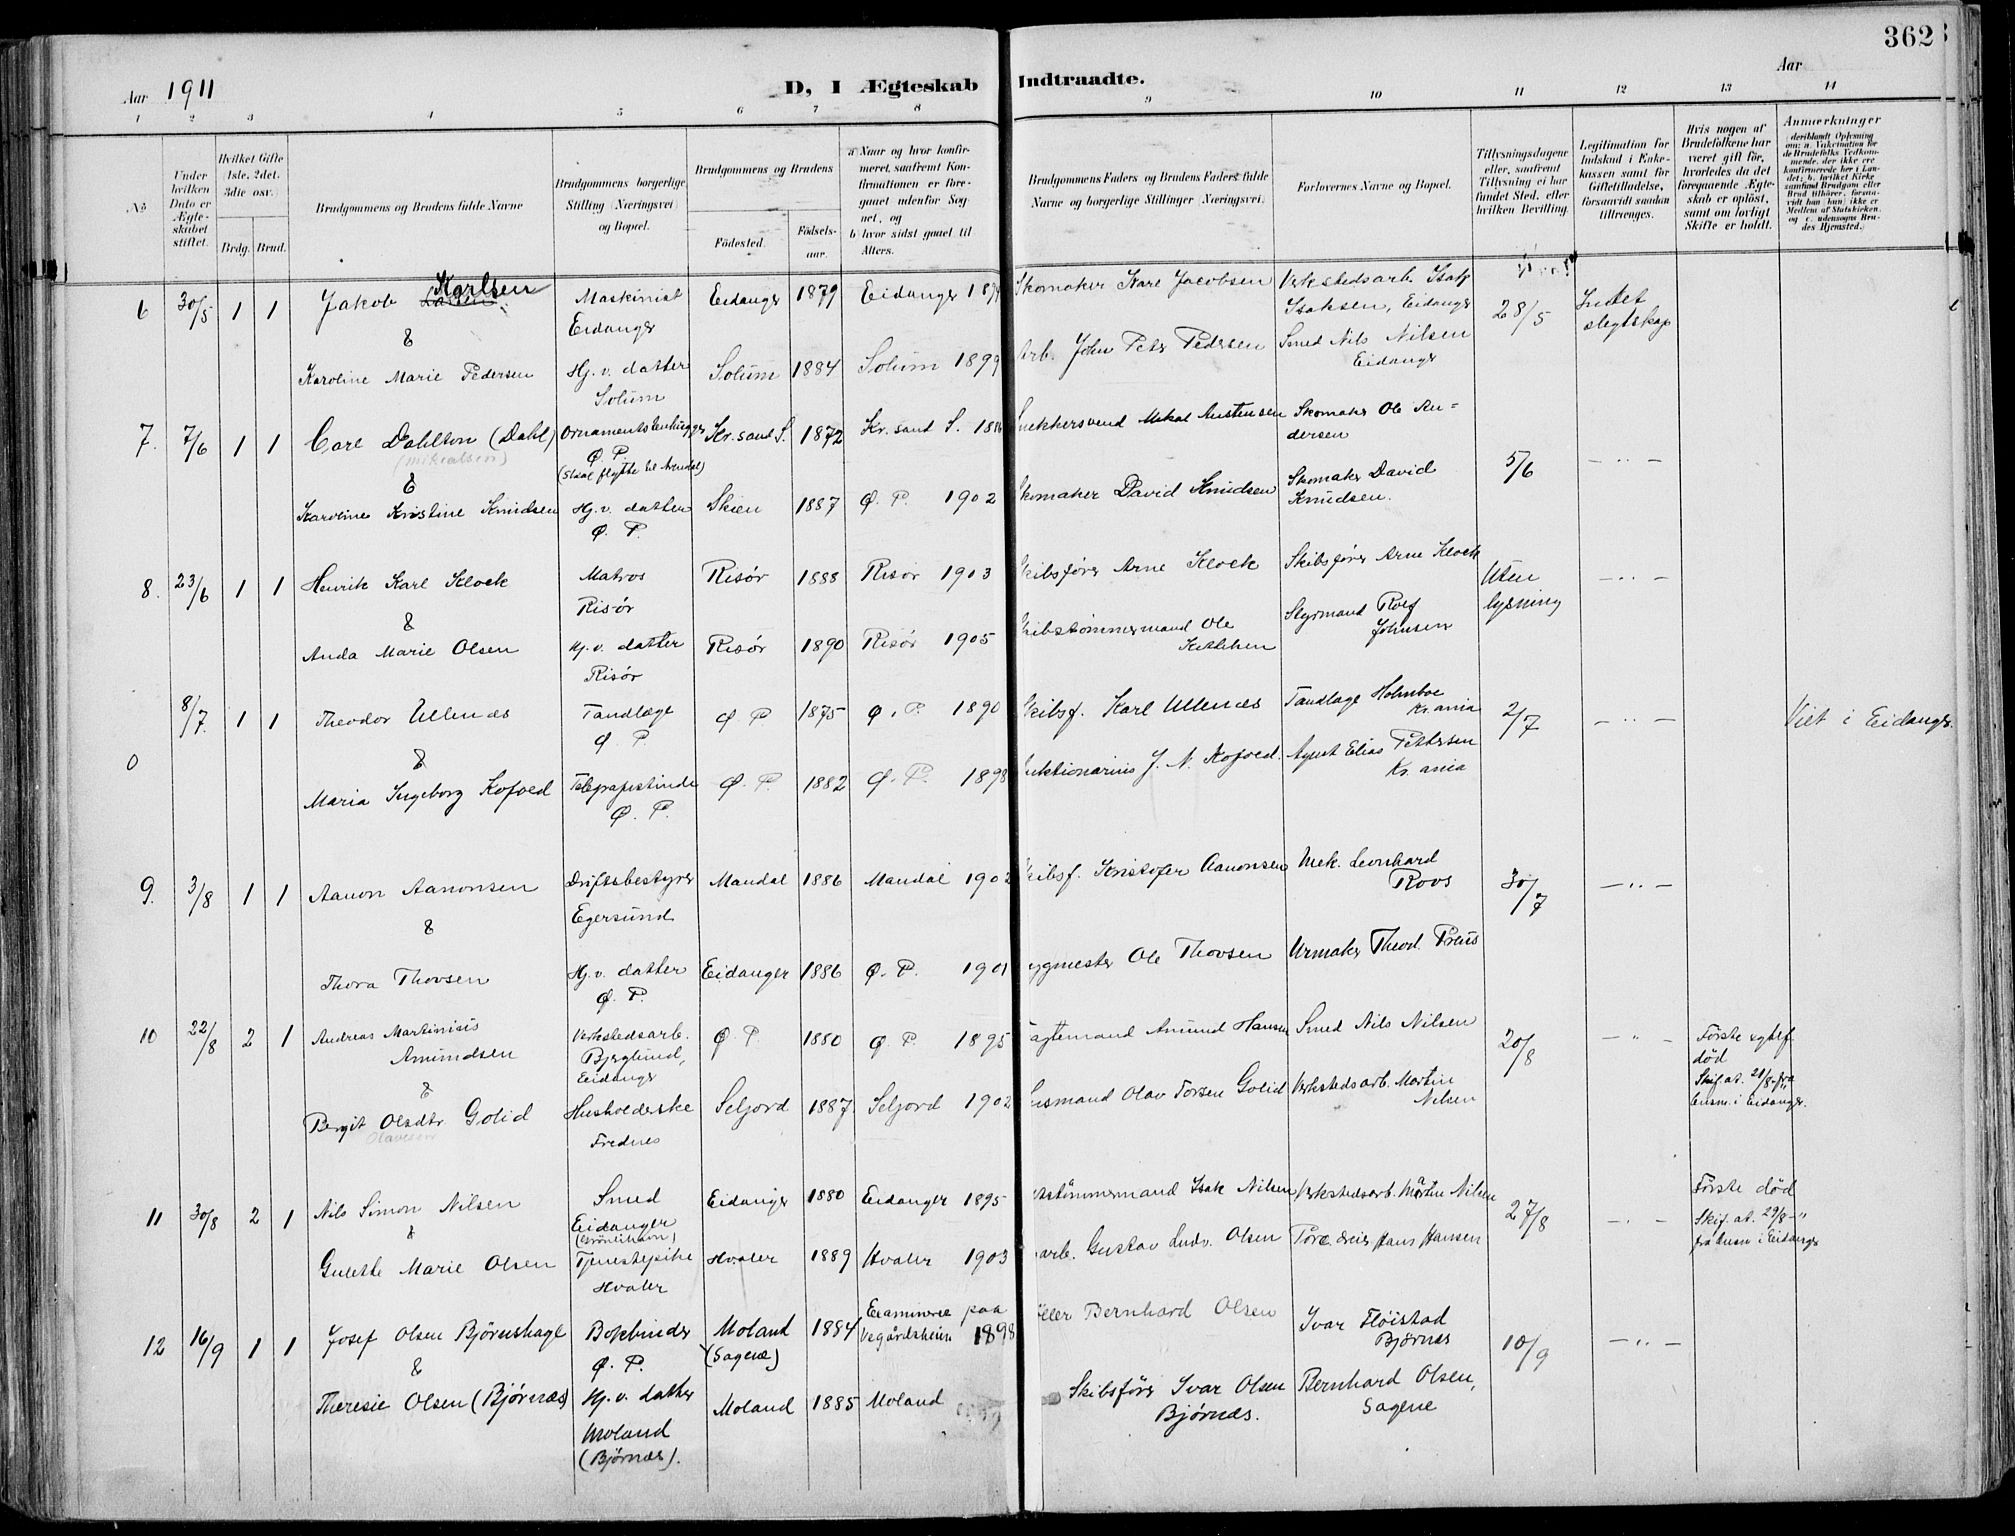 362
Aar 1911
D, I Ægteskab Indtraadte.
Aar
1 2 3 4 5 6 7 8 9 10 11 12 13 14
No
Under hvilken Dato er Ægteskabet stiftet.
Hvilket Gifte (1ste, 2det, 3die osv.)
Brdg. Brud.
Brudgommens og Brudens fulde Navne
Brudgommens borgerlige Stilling (Næringsvei) og Bopæl.
Brudgommens og Brudens
Födested.
Födselsaar.
a Naar og hvor konfirmeret, saafremt Konfirmationen er foregaaet udenfor Sognet, og
b) hvor sidst gaaet til Alters.
Brudgommens Faders og Brudens Faders fulde Navne og borgerlige Stillinger (Næringsvei)
Forlovernes Navne og Bopæl.
Tillysningsdagene eller, saafremt Tillysning ei har fundet Sted, efter hvilken Bevilling.
Legitimation for Indskud i Enkekassen samt for Giftetilladelse, forsaavidt saadan tiltrænges.
Hvis nogen af Brudefolkene har været gift för, hvorledes da det foregaaende Ægteskab er oplöst, samt om lovligt Skifte er holdt.
Anmærkninger
(deriblandt Oplysning om: a. Vakcination for de Brudefolks Vedkommende, der ikke ere konfirmerede her i Landet; b. hvilket Kirkesamfund Brudgom eller Brud tilhörer, forsaavidt han (hun) ikke er Medlem af Statskirken, og c. udensogns Brudes Hjemsted.)
6 30/5 1 1 Jakob Karlsen Maskinist Eidanger Eidanger 1879 Eidanger Skomaker Karl Jacobsen Verkstedsarb. Isak Isaksen, Eidanger 28/5 Intet slegtskap
&
Karoline Marie Pedersen Hj. v. datter Solum Solum 1884 Solum 1899 Arb. John Peter Pedersen Smed Nils Nilsen Eidanger
7. 7/6 1 1 Carl Dahlton (Dahl) Ø P. (skal flytte til Arendal) Kr.sand S. 1872 Kr. sand S. Austensen Skomaker Ole Andersen 5/6 — " —
&
Karoline Kristine Knudsen Hj. v. datter Ø. P. Skien 1887 Ø. P. 1902 Skomaker David Knudsen Skomaker David Knudsen.
8. 23/6 1 1 Henrik Karl Klock Matros Risör Risör 1888 Risör 1903 Skibsförer Arne Klock Skibsförer Arne Klock Uten lysning — " —
&
Anda Marie Olsen Hj. v. datter Risör Risör 1890 Risör 1905 Skibstömmermand Ole Styrmand Rolf Johnsen
0 8/7. 1 1 Theodor Ullenæs Tandlæge Ø. P. Ø P 1875 Ø. P. 1890 Skibsf. Karl Ullenæs Tandlæge Holmboe Kr.ania 2/7 — " — Viet i Eidanger.
&
Maria Ingeborg Kofoed Telegrafistinde Ø. P. Ø. P. 1882 Ø. P. 1898 Auktionarius J. N. Kofoed. Agent Elias Pettersen Kr.ania
9. 3/8 1 1 Aanon Aanonsen Driftsbestyrer Egersund Mandal 1886 Mandal 1902 Skibsf. Kristofer Aanonsen Mek. Leonhard Roos 30/7 — " —
&
Thora Thovsen Hj. v. datter Ø. P. Eidanger 1886 Ø. P. 1901 Bygmester Ole Thovsen Urmaker Theod. Preus
10 22/8 2 1 Andreas Martinius Amundsen Verkstedsarb. Bjerglund, Eidanger Ø. P. 1880 Ø. P. 1895 Amund Hansen Smed Nils Nilsen 20/8 — " — Förste egtef. död Skif.at. 21/8 fra lensm. i Eidanger.
&
Bergit Olsdtr Golid Husholderske Frednes Seljord 1887 Seljord 1902 Husmand Olav Torsen Golid Verkstedsarb. Martin Nilsen
11 30/8 2 1 Nils Simon Nilsen Smed Eidanger Eidanger 1880 Eidanger 1895 Isak Nilsen Verkstedsarb. Martin Nilsen 27/8 — " — Förste död Skif.at. 29/8 fra lensm i Eidanger
&
Gulette Marie Olsen Tjenestepike Hvaler Hvaler 1889 Hvaler 1903 arb. Gustav Ludv. Olsen Hans Hansen
12 16/9 1 1 Josef Olsen Björnshage Bokbinder Ø. P. Moland (Sagene) 1884 Examineret paa Vegårdsheien 1898 Bernhard Olsen Ivar Flöistad Bjørnæs 10/9 — " —
&
Theresie Olsen (Björnæs) Hj. v. datter Moland (Björnæs). Moland 1885 Moland Skibsförer Ivar Olsen Bjørnæs. Bernhard Olsen, Sagene